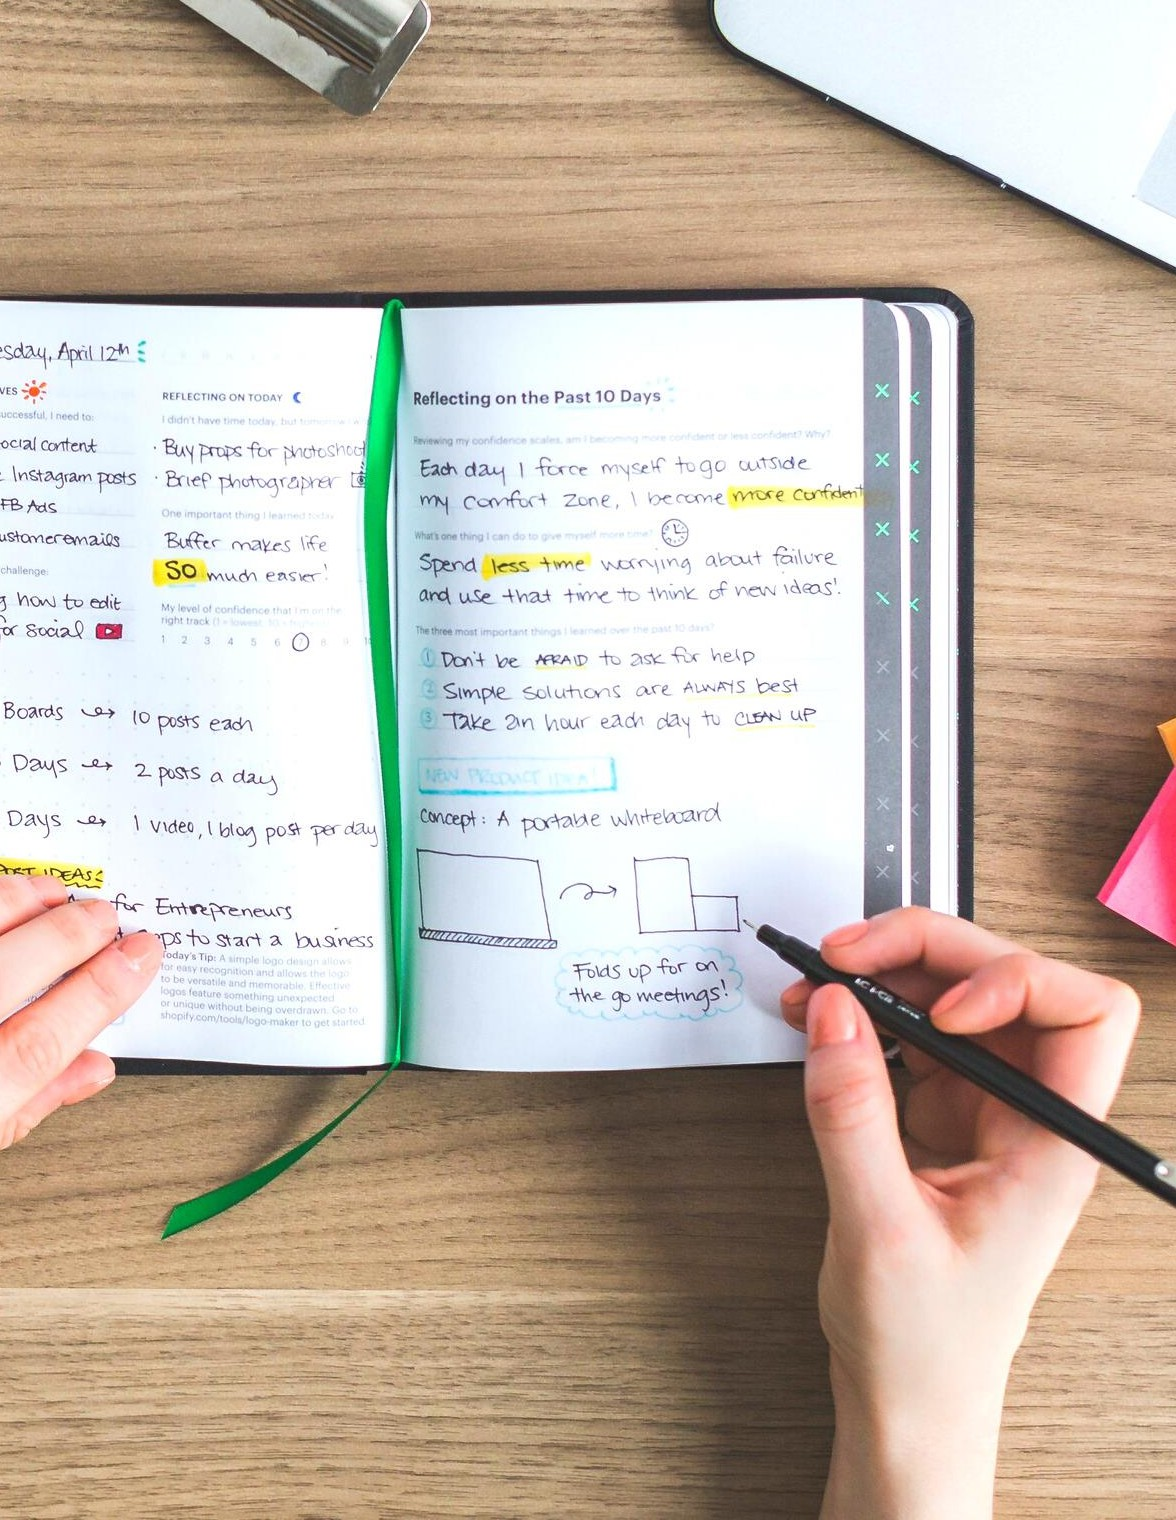 esday, April 12th
VES
uccessful, I need to:
ocial content
Instagram posts
FB Ads
ustomer emails
challenge:
g how to edit
or Social
REFLECTING ON TODAY
I didn't have time today, but tomorrow I w
· Buy props for photoshoot
· Brief photographer
One important thing I learned today
Buffer makes life
SO much easier!
My level of confidence that I'm on the
right track (1 = lowest, 10 =
1 2 3 4 5 6 7 8 9 1
Boards 10 posts each
Days 2 posts a day
Days 1 video, 1 blog post per day
POST IDEAS:
for Entrepreneurs
eps to start a business
Today's Tip: A simple logo design allows
for easy recognition and allows the logo
to be versatile and memorable. Effective
logos feature something unexpected
or unique without being overdrawn. Go to
shopify.com/tools/logo-maker to get started
Reflecting on the Past 10 Days
Reviewing my confidence scales, am I becoming more confident or less confident? Why?
Each day I force myself to go outside
my comfort zone, I become more confident
What's one thing I can do to give myself more time?
Spend less time worrying about failure
and use that time to think of new ideas!
The three most important things I learned over the past 10 days?
1 Don't be AFRAID to ask for help
2 Simple solutions are ALWAYS best
3 Take an hour each day to CLEAN UP
NEW PRODUCT IDEA!
Concept: A portable whiteboard
Folds up for on
the go meetings!